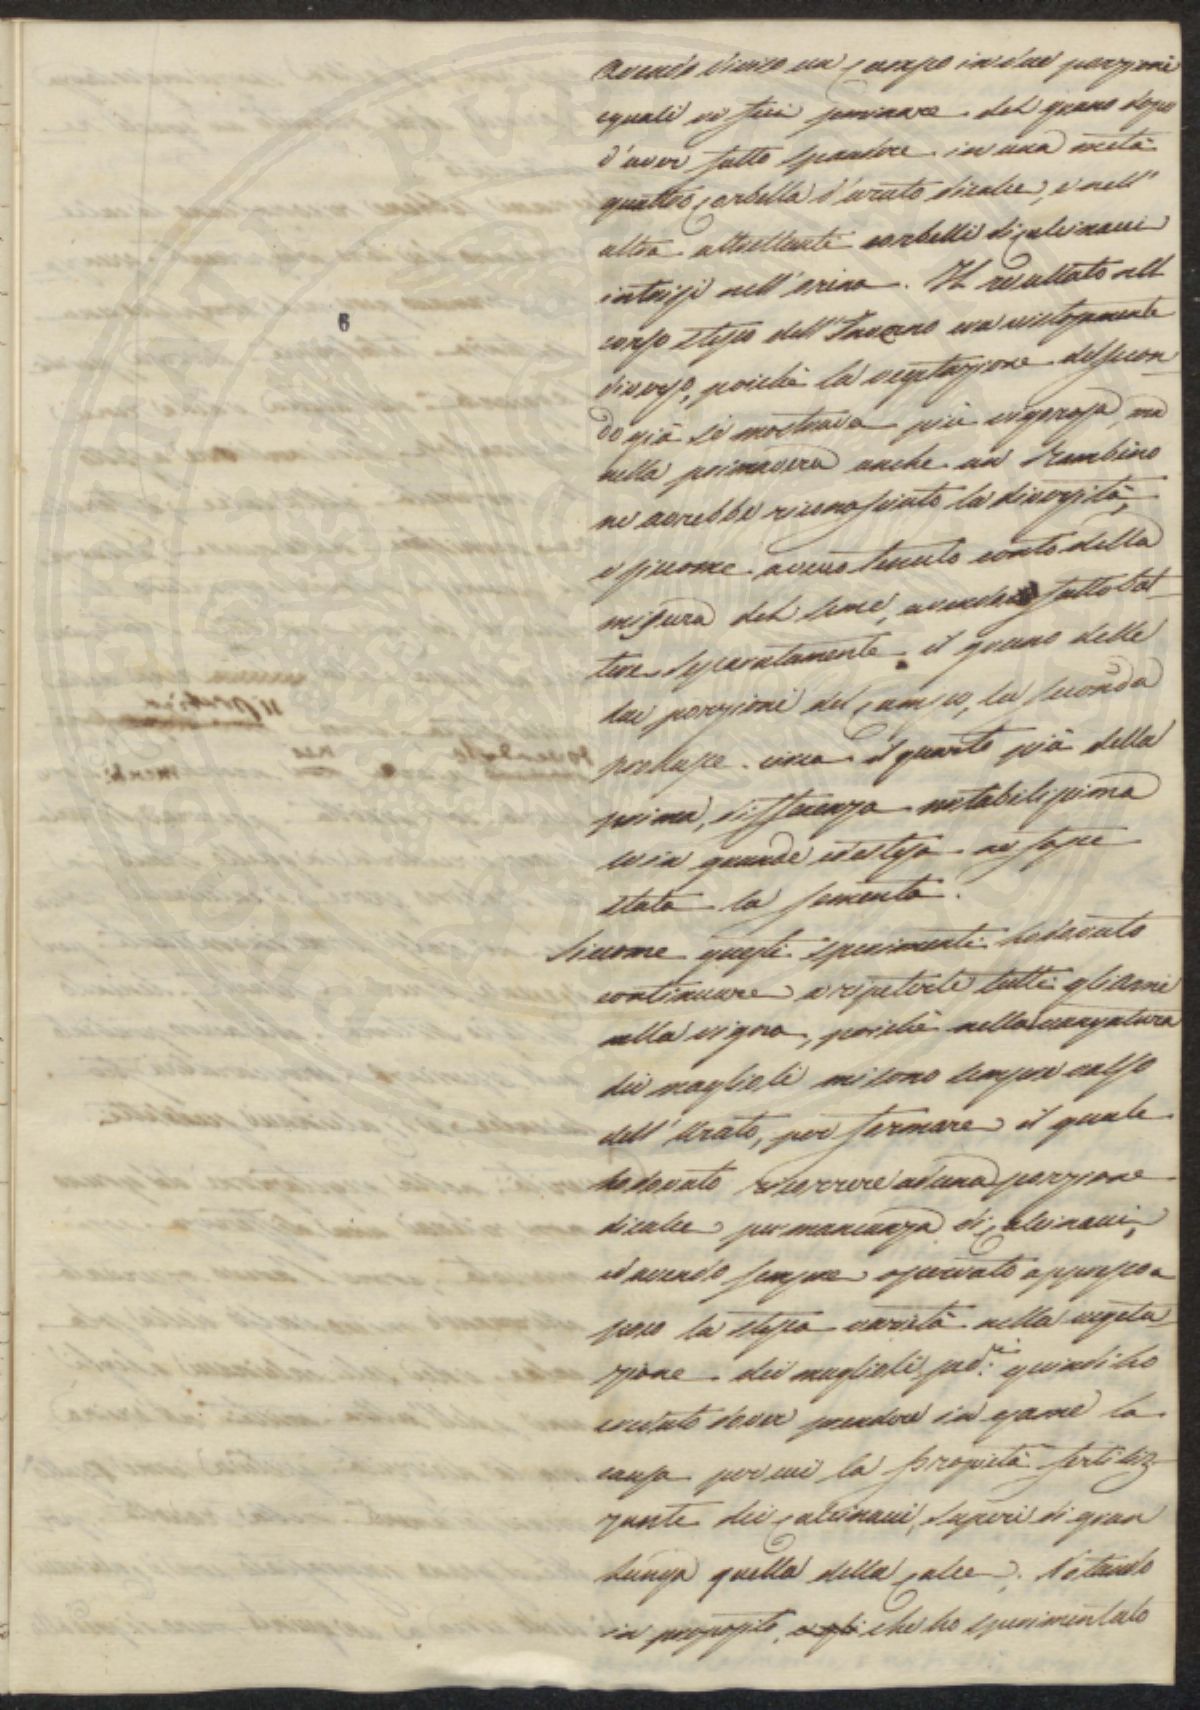 Avendo diviso un campo in due porzioni
eguali vi feci seminare del grano dopo
d'aver fatto spandere in una metà
quattro corbella d'urato di calce, e nell'
altra altrettanti corbelli di calcinacci
intrisi nell'orina. Il resultato nel
corso stesso dell'Inverno era vistosamente
diverso, poichè la vegetazione del secon
do già si mostrava più vigorosa, ma
nella primavera anche un Bambino
ne avrebbe riconosciuto la diversità,
e siccome avevo tenuto conto della
misura del seme, avendo fatto bat
tere separatamente il grano delle
due porzioni del campo, la seconda
produsse circa il quarto più della
prima, differenza notabilissima
se in grande estesa ne fosse
stata la sementa.
Siccome questi sperimenti ho dovuto
continuare a ripeterli tutti gli anni
nella vigna, poichè nella
dei maglioli mi sono sempre valso
dell'Urato, per formare il quale
ho dovuto ricorrere ad una porzione
di calce per mancanza di calcinacci,
ed avendo sempre osservato appresso a
poco la stessa varietà nella vegeta
zione dei maglioli, quindi ho
creduto dover prendere in esame la
causa per cui la proprietà fertiliz
zante dei calcinacci, superi di gran
lunga quella della calce. Notando
in proposito, che ho sperimentato
6